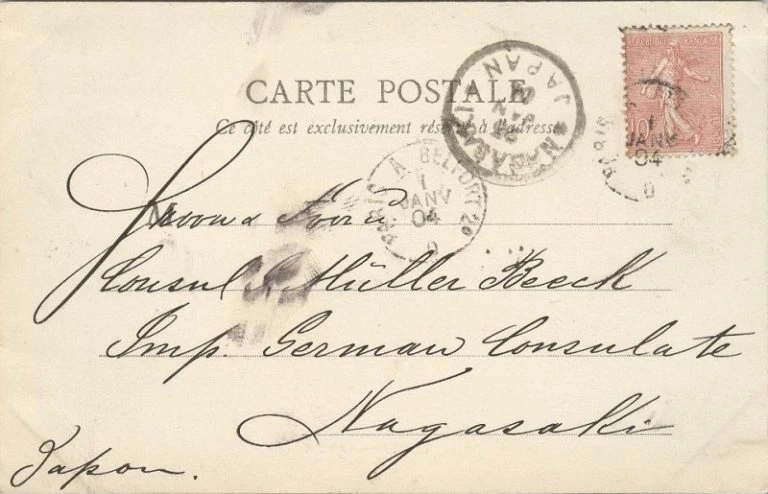 CARTE POSTALE
Ce côté est exclusivement réservé à l'adresse
NAGASAKI JAPAN
PARIS A BELFORT 2º
1
JANV
04
RÉPUBLIQUE FRANÇAISE
10
1
JANV
04
Consul Müller Beeck
Imp. German Consulate
Nagasaki
Japon.